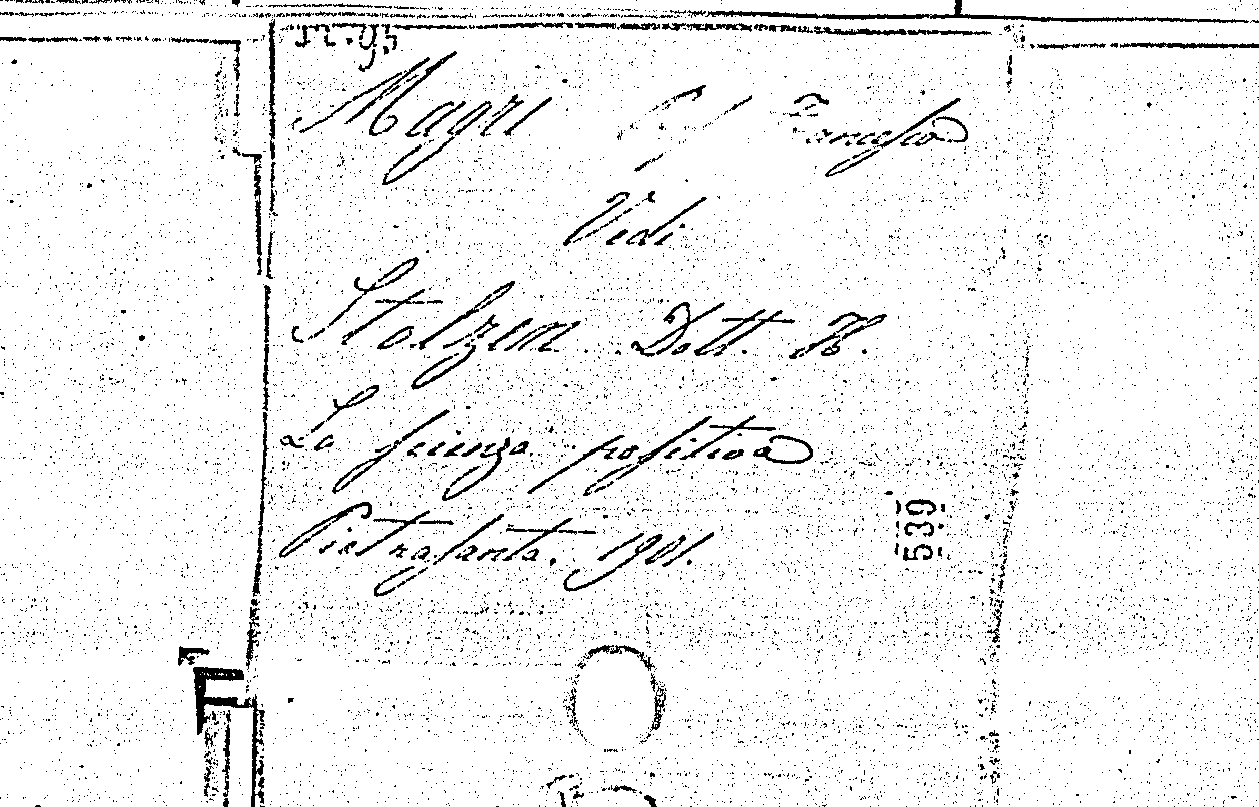 Magri Francesco
Vedi
Stolzem Dott. H.
La scienza positiva
Pietrasanta. 1901.
539